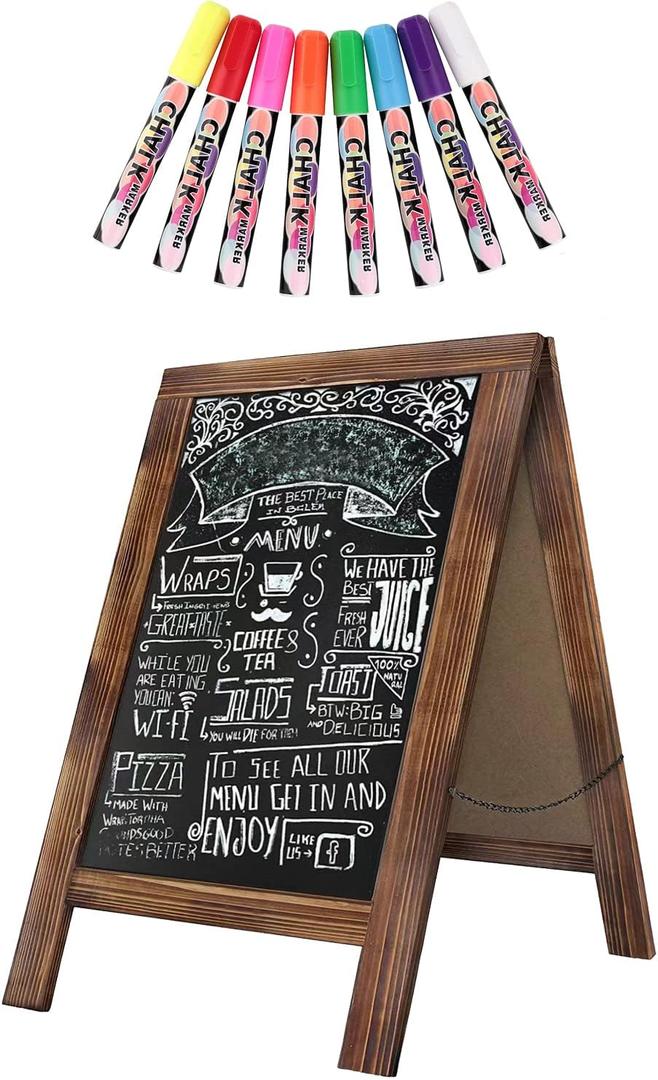 CHALK MARKER
CHALK MARKER
CHALK MARKER
CHALK MARKER
CHALK MARKER
CHALK MARKER
CHALK MARKER
CHALK MARKER
THE BEST PLACE
IN
MENU
WRAPS
FRESH
GREAT TASTE
WHILE YOU
ARE EATING
YOU CAN:
WI-FI
COFFEE &
TEA
SALADS
YOU WILL DIE FOR
WE HAVE THE
BEST
FRESH
EVER
JUICE
TOAST
100%
NATU
RAL
BTW: BIG
AND DELICIOUS
PIZZA
MADE WITH
GOOD
BETTER
TO SEE ALL OUR
MENU GET IN AND
ENJOY
LIKE
US → f